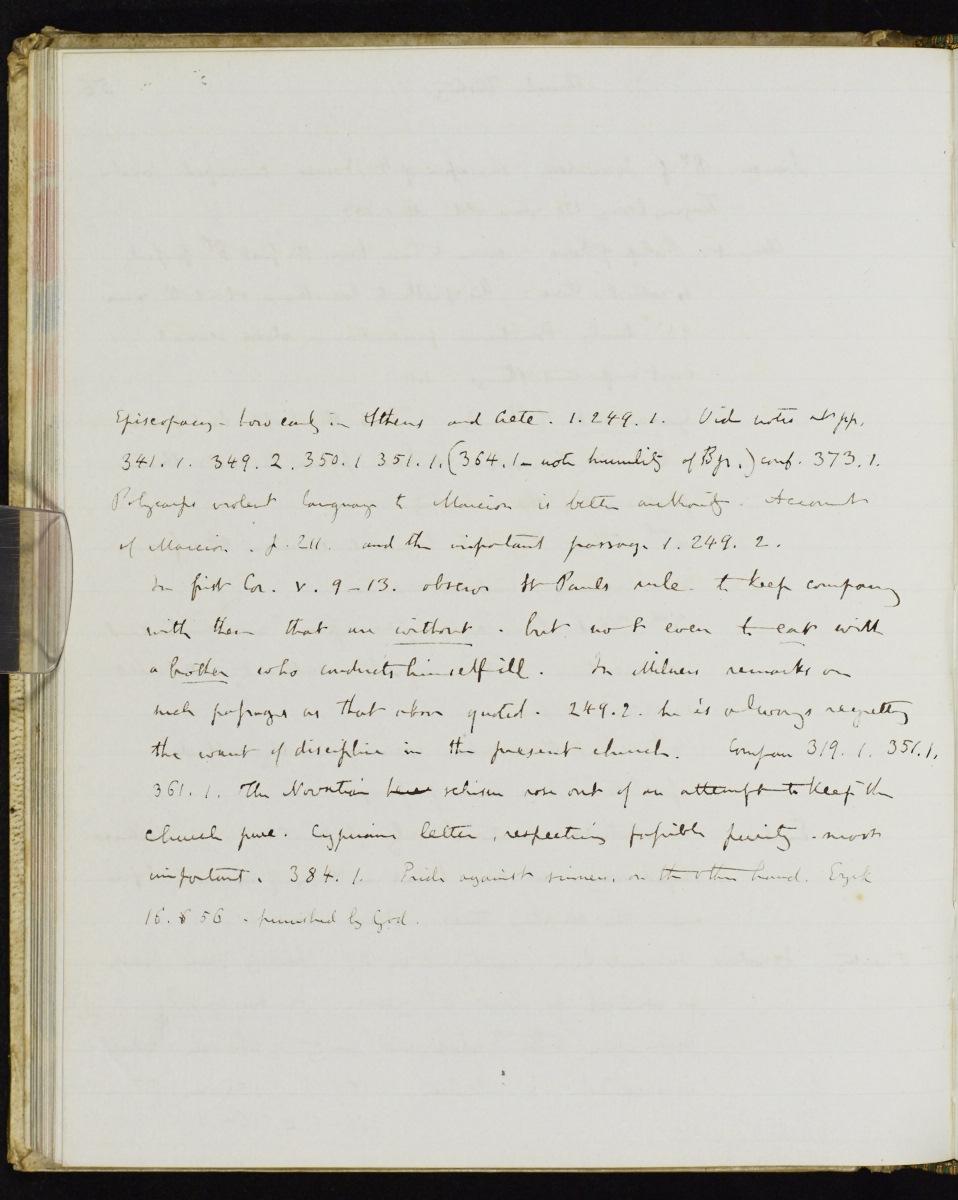 Episcopacy - how early in Athens and Crete . 1. 249. 1. Vid notes at pp.
341. 1. 349. 2. 350. 1 351. 1. (364. 1 - note humility of Bps.) conf. 373. 1.
Polycarps violent language to Marcion is better authority. Account
of Marcion . p. 211. and the important passage 1. 249. 2.
In first Cor. v. 9 - 13. observe St Pauls rule. to keep company
with them that are without . but not even to eat with
a brother who conducts himself ill . In Milners remarks on
such passages as that above quoted. 249. 2. he is always regretting
the want of discipline in the present church. Compare 319. 1. 351. 1.
361. 1. The Novatian schism rose out of an attempt to keep the
church pure. Cyprians letter, respecting possible purity - most
important. 384. 1. Pride against sinners, on the other hand. Ezek
16. 56 - punished by God.